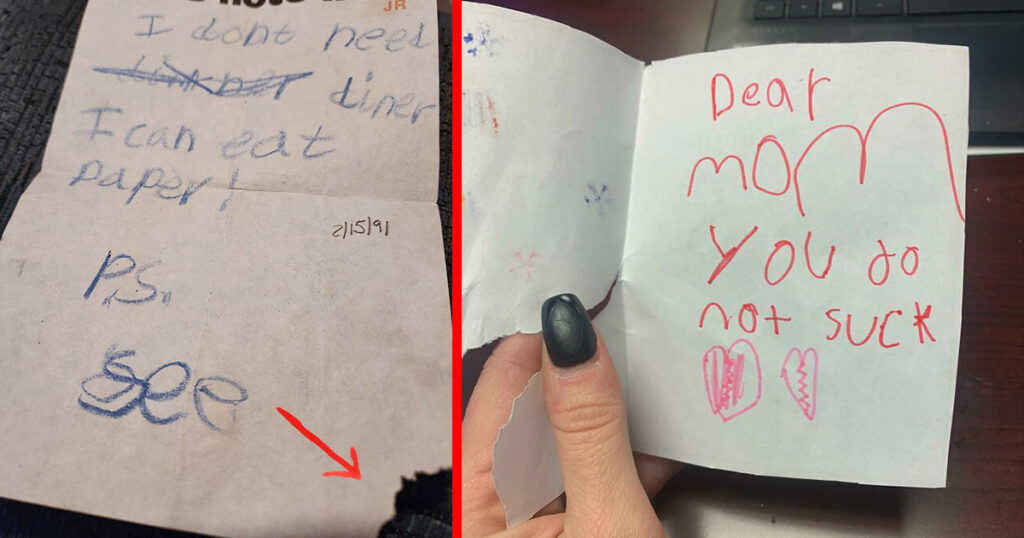 JR
I dont need
diner
I can eat
paper!
2/15/91
P.S.
see
Dear
mom
you do
not suck